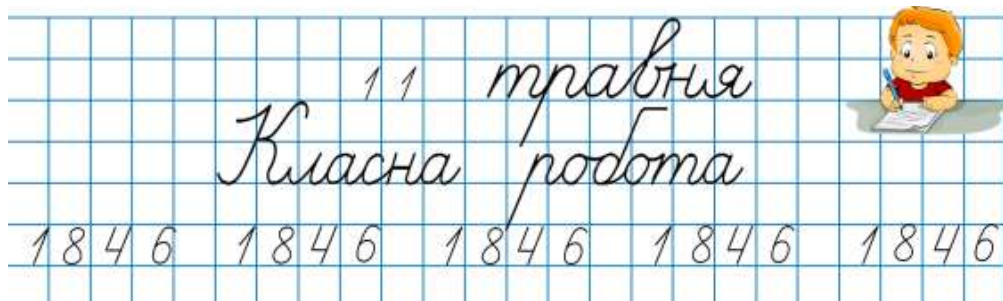 11 травня
Класна робота
1846 1846 1846 1846 1846